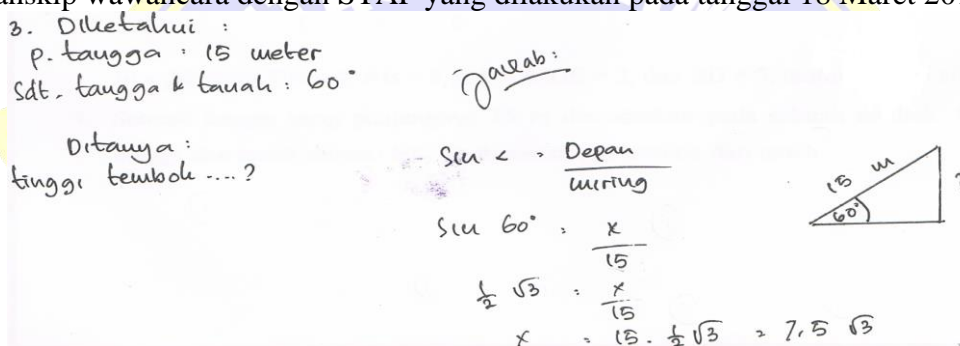 wawancara dengan STAP yang dilakukan pada tanggal 18 Maret
3. Diketahui :
p. tangga : 15 meter
Sdt. tangga & tanah : 60°
Ditanya :
tinggi tembok ....?
Jawab :
Sin < = Depan / miring
Sin 60° = x / 15
½ √3 = x / 15
x = 15 . ½ √3 = 7,5 √3
15 m
60°
?